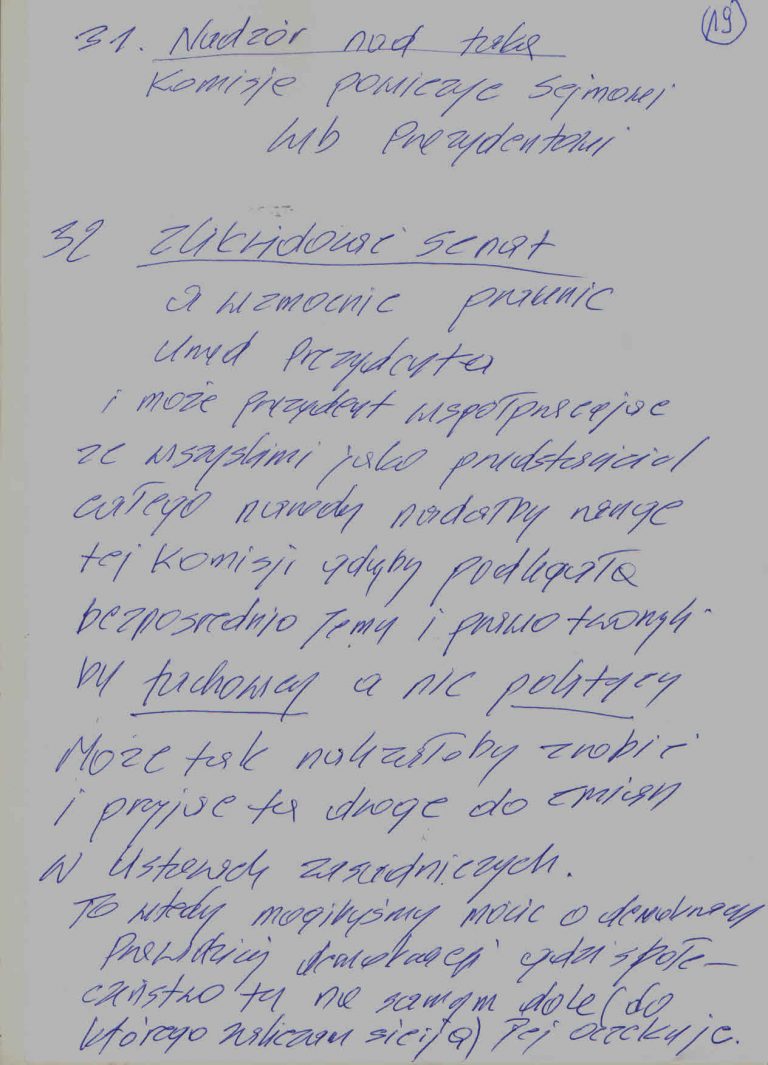 19
31. Nadzór nad taką
Komisję powierzyć Sejmowi
lub Prezydentowi
32 Zlikwidować Senat
a wzmocnić prawnie
Urząd Prezydenta
i może prezydent współpracując
ze wszyskimi jako przedstawiciel
całego narodu nadałby rangę
tej Komisji gdyby podlegała
bezpośrednio Jemu i prawo tworzyli
by fachowcy a nie politycy
Może tak należałoby zrobić
i przyjąć tą drogę do zmian
w Ustawach zasadniczych.
To wtedy moglibyśmy mówić o demokracji
Prawdziwej demokracji gdzi społe-
czeństwo tu na samym dole (do
którego zaliczam się i ja) Jej oczekuje.